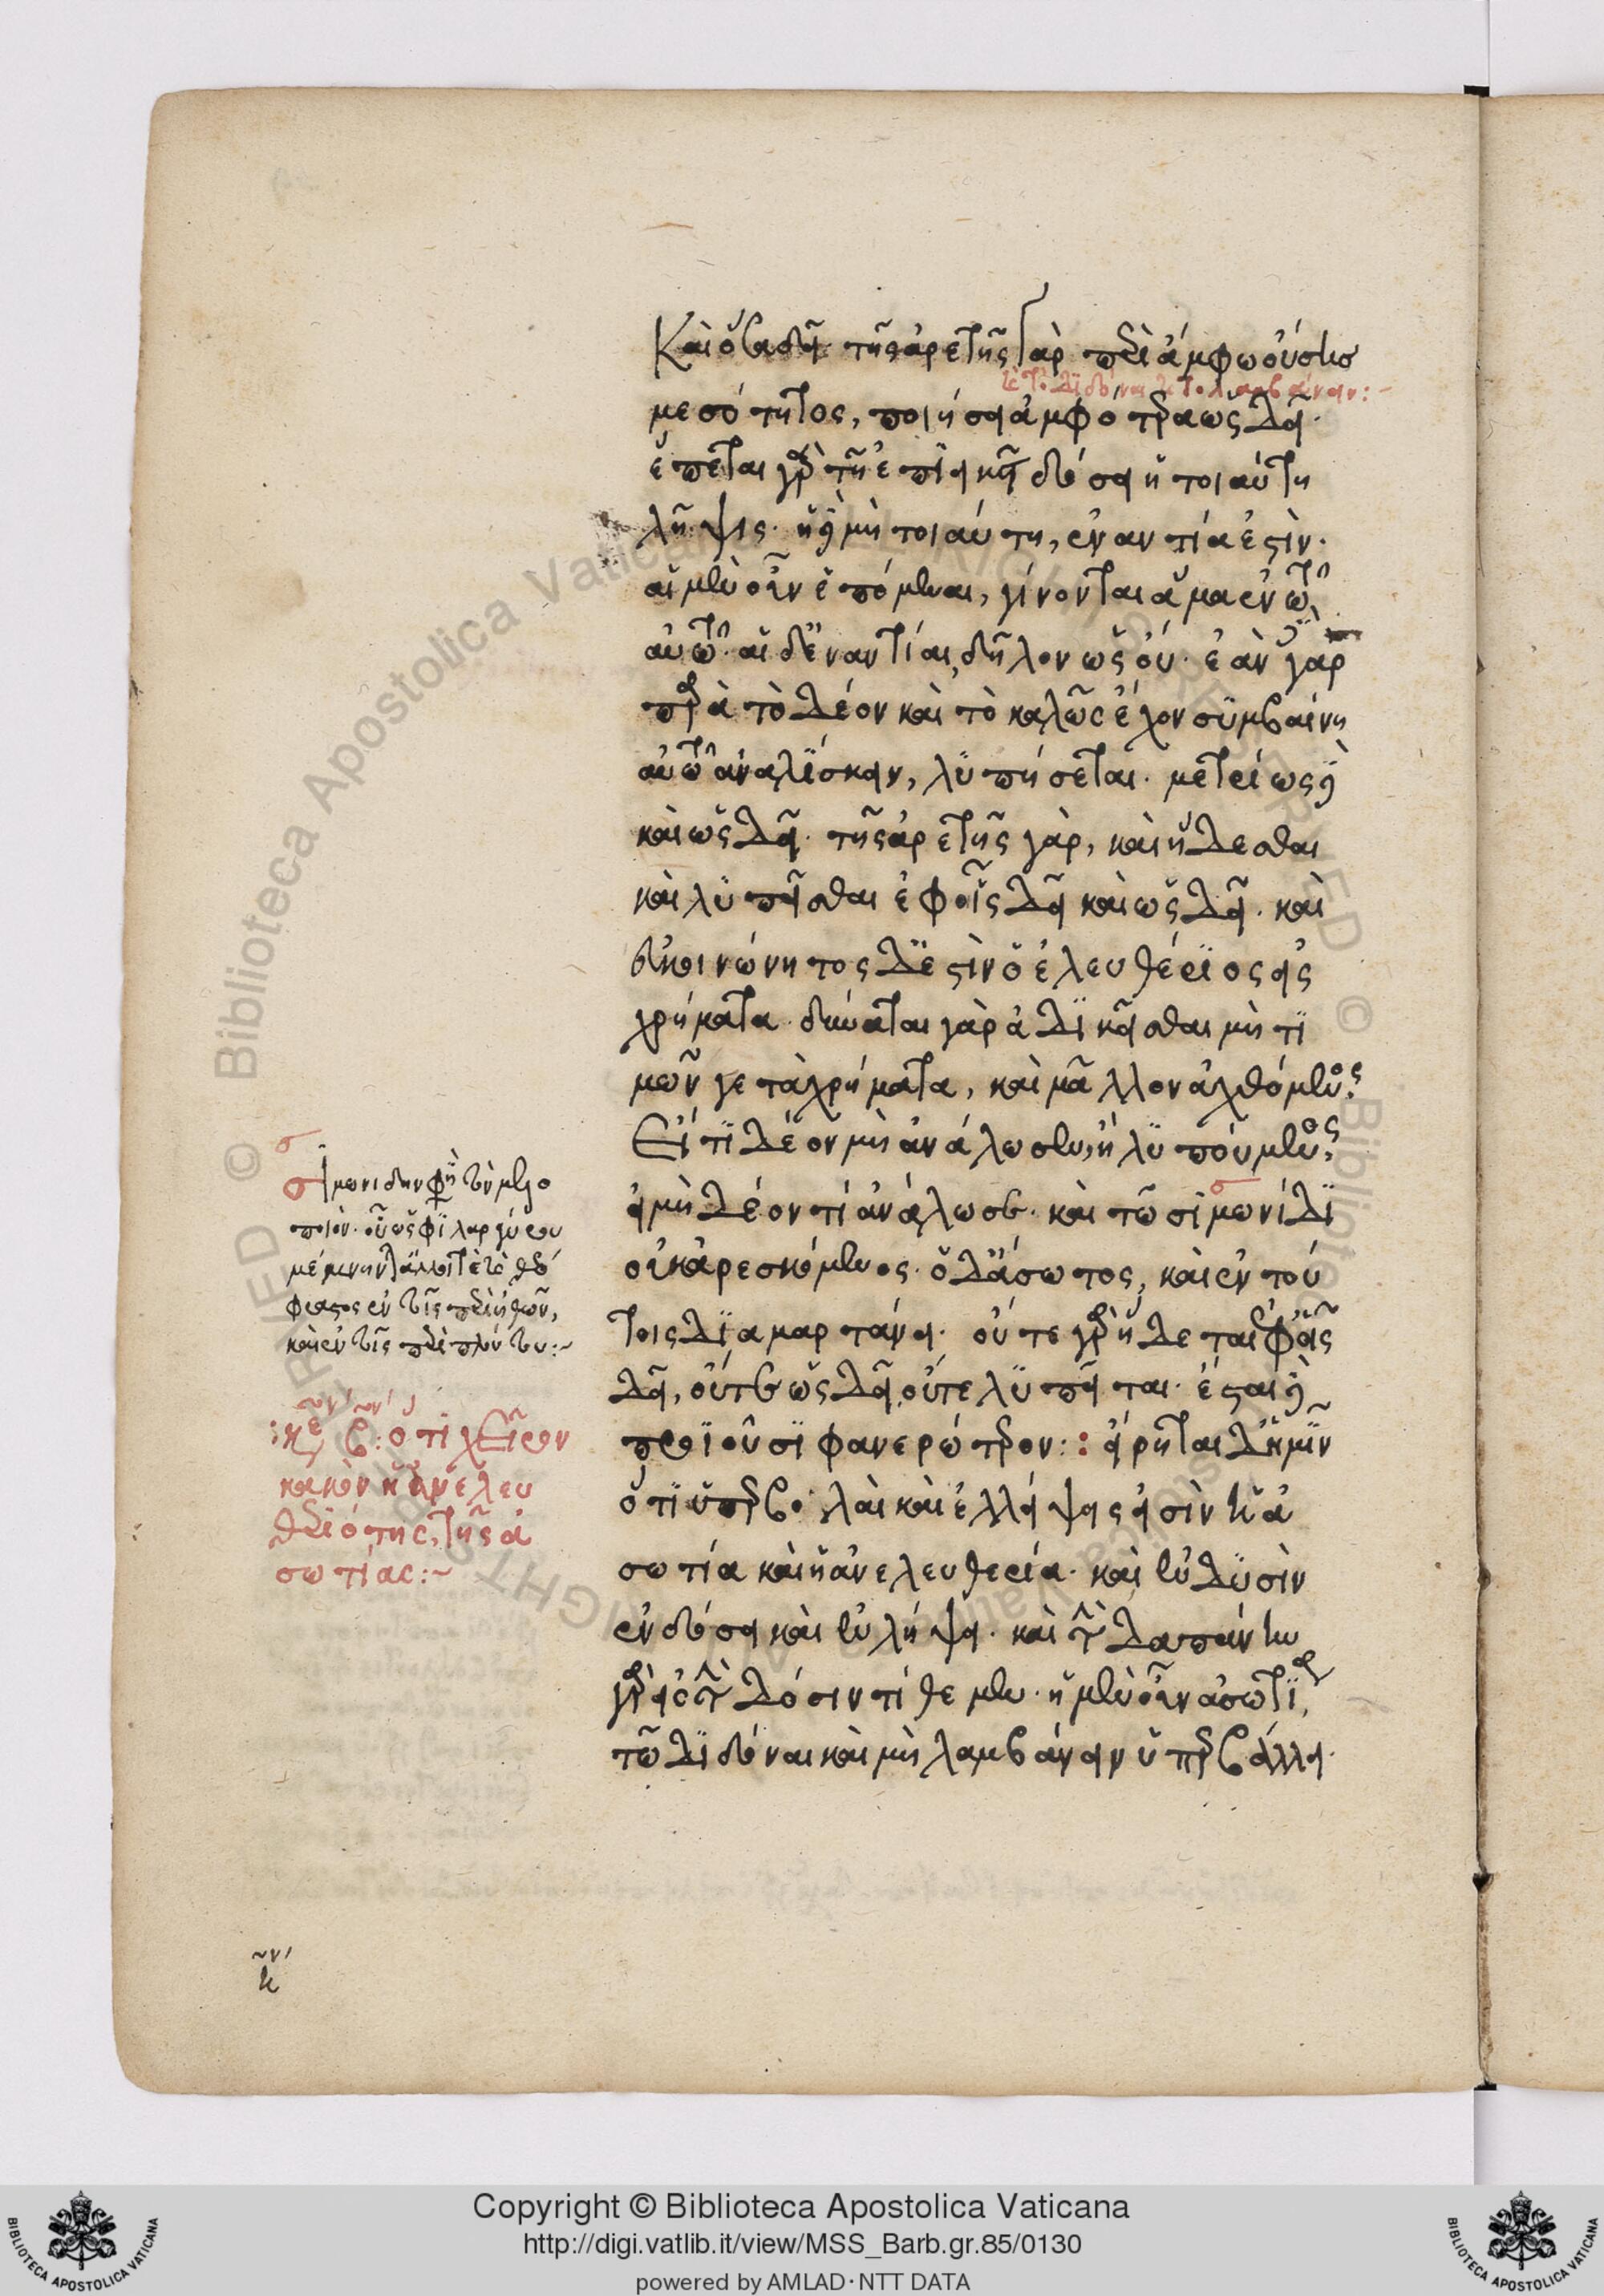 Καὶ ὅθεν δεῖ. τῆς ἀρετῆς γὰρ περὶ ἄμφω οὔσης
καὶ τὸ διδόναι καὶ τὸ λαμβάνειν:~
μεσότητος, ποιήσει ἀμφότερα ὡς δεῖ.
ἕπεται γὰρ τῇ ἐπιεικεῖ δόσει ἡ τοιαύτη
λῆψις. ἡ δὲ μὴ τοιαύτη, ἐναντία ἐστίν.
αἱ μὲν οὖν ἑπόμεναι, γίνονται ἅμα ἐν τῷ
αὐτῷ. αἱ δ' ἐναντίαι, δῆλον ὡς οὔ. ἐὰν δὲ παρὰ
τὸ δέον καὶ τὸ καλῶς ἔχον συμβαίνῃ
αὐτῷ ἀναλίσκειν, λυπήσεται. μετρίως δὲ
καὶ ὡς δεῖ. τῆς ἀρετῆς γὰρ, καὶ ἥδεσθαι
καὶ λυπεῖσθαι ἐφ' οἷς δεῖ καὶ ὡς δεῖ. καὶ
εὐκοινώνητος δ' ἐστὶν ὁ ἐλευθέριος εἰς
χρήματα. δύναται γὰρ ἀδικεῖσθαι μὴ τι
μῶν γε τὰ χρήματα, καὶ μᾶλλον ἀχθόμενος
εἴ τι δέον μὴ ἀνάλωσεν, ἢ λυπούμενος
εἰ μὴ δέον τι ἀνάλωσε. καὶ τῷ σιμωνίδῃ
οὐκ ἀρεσκόμενος. ὁ δ' ἄσωτος, καὶ ἐν τού
τοις διαμαρτάνει. οὔτε γὰρ ἥδεται ἐφ' οἷς
δεῖ, οὔτε ὡς δεῖ, οὔτε λυπεῖται. ἔσται δὲ
προϊοῦσι φανερώτερον: : εἴρηται δ' ἡμῖν
ὅτι ὑπερβολαὶ καὶ ἐλλείψεις εἰσὶν ἡ ἀ
σωτία καὶ ἡ ἀνελευθερία. καὶ ἐν δυσὶν
ἐν δόσει καὶ ἐν λήψει. καὶ τὴν δαπάνην
γὰρ εἰς τὴν δόσιν τίθεμεν. ἡ μὲν οὖν ἀσωτία
τῷ διδόναι καὶ μὴ λαμβάνειν ὑπερβάλλει.
σιμωνίδην φησὶ τὸν μελο
ποιόν. οὗ ὡς φιλαργύρου
μέμνηνται ἄλλοι τε καὶ ὁ θεό
φραστος ἐν τοῖς περὶ ἠθῶν,
καὶ ἐν τοῖς περὶ πλούτου:~
ὅτι χεῖρον
κακὸν ἡ ἀνελευ
θεριότης, τῆς ἀ
σωτίας:~
Copyright © Biblioteca Apostolica Vaticana
http://digi.vatlib.it/view/MSS_Barb.gr.85/0130
powered by AMLAD·NTT DATA